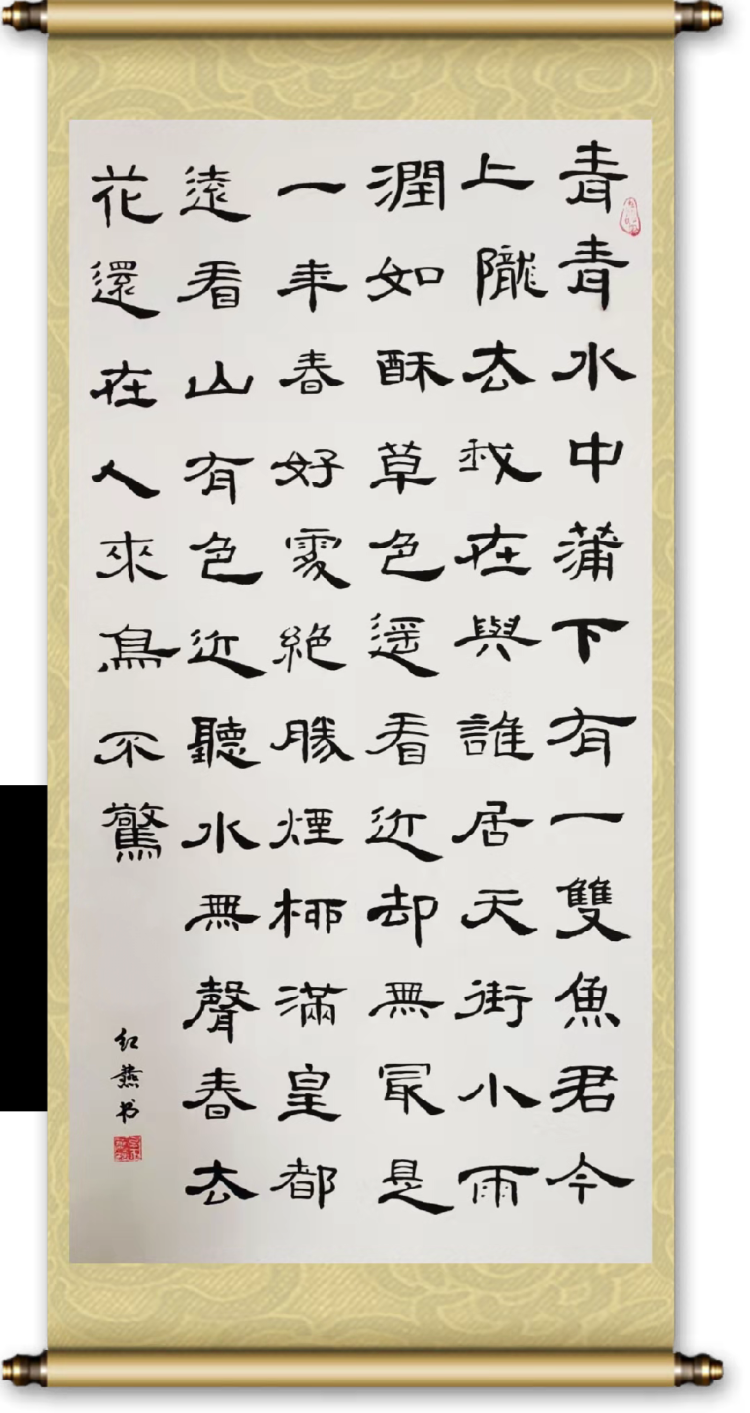 青青水中蒲下有一雙魚君今
上隴去我在與誰居天街小雨
潤如酥草色遥看近却無最是
一年春好處絶勝煙柳滿皇都
遠看山有色近聽水無聲春去
花還在人來鳥不驚
紅燕书